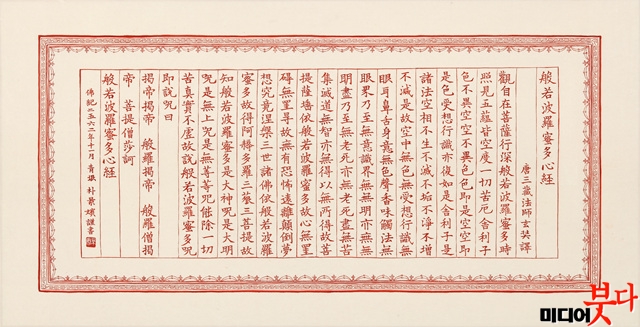 般若波羅蜜多心經
唐三藏法師玄奘譯
觀自在菩薩行深般若波羅蜜多時
照見五蘊皆空度一切苦厄舍利子
色不異空空不異色色即是空空即
是色受想行識亦復如是舍利子是
諸法空相不生不滅不垢不淨不增
不減是故空中無色無受想行識無
眼耳鼻舌身意無色聲香味觸法無
眼界乃至無意識界無無明亦無無
明盡乃至無老死亦無老死盡無苦
集滅道無智亦無得以無所得故菩
提薩埵依般若波羅蜜多故心無罣
碍無罣碍故無有恐怖遠離顛倒夢
想究竟涅槃三世諸佛依般若波羅
蜜多故得阿耨多羅三藐三菩提故
知般若波羅蜜多是大神呪是大明
呪是無上呪是無等等呪能除一切
苦真實不虛故說般若波羅蜜多呪
即說呪曰
揭帝揭帝 般羅揭帝 般羅僧揭
帝 菩提僧莎訶
般若波羅蜜多心經
佛紀二五六二年十一月 朴景 謹書
미디어붓다